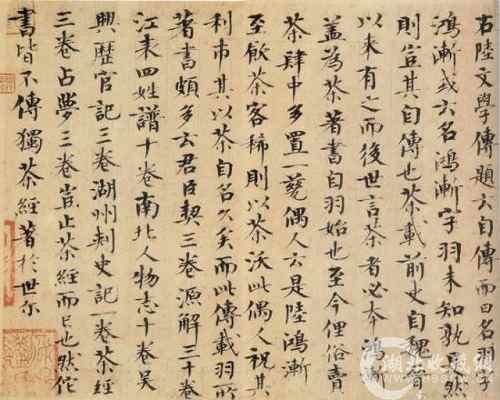 右陸文學傳題云自傳而曰名羽字
鴻漸或云名鴻漸字羽未知孰是然
則豈其自傳也茶載前史自魏晉
以來有之而後世言茶者必本鴻漸
蓋為茶著書自羽始也至今俚俗賣
茶肆中多置一甆偶人云是陸鴻漸
至飲茶客稀則以茶沃此偶人祝其
利市其以茶自名久矣而此傳載羽所
著書頗多云君臣契三卷源解三十卷
江表四姓譜十卷南北人物志十卷吳
興歷官記三卷湖州刺史記一卷茶經
三卷占夢三卷豈止茶經而已也然佗
書皆不傳獨茶經著於世爾
湖北收藏网